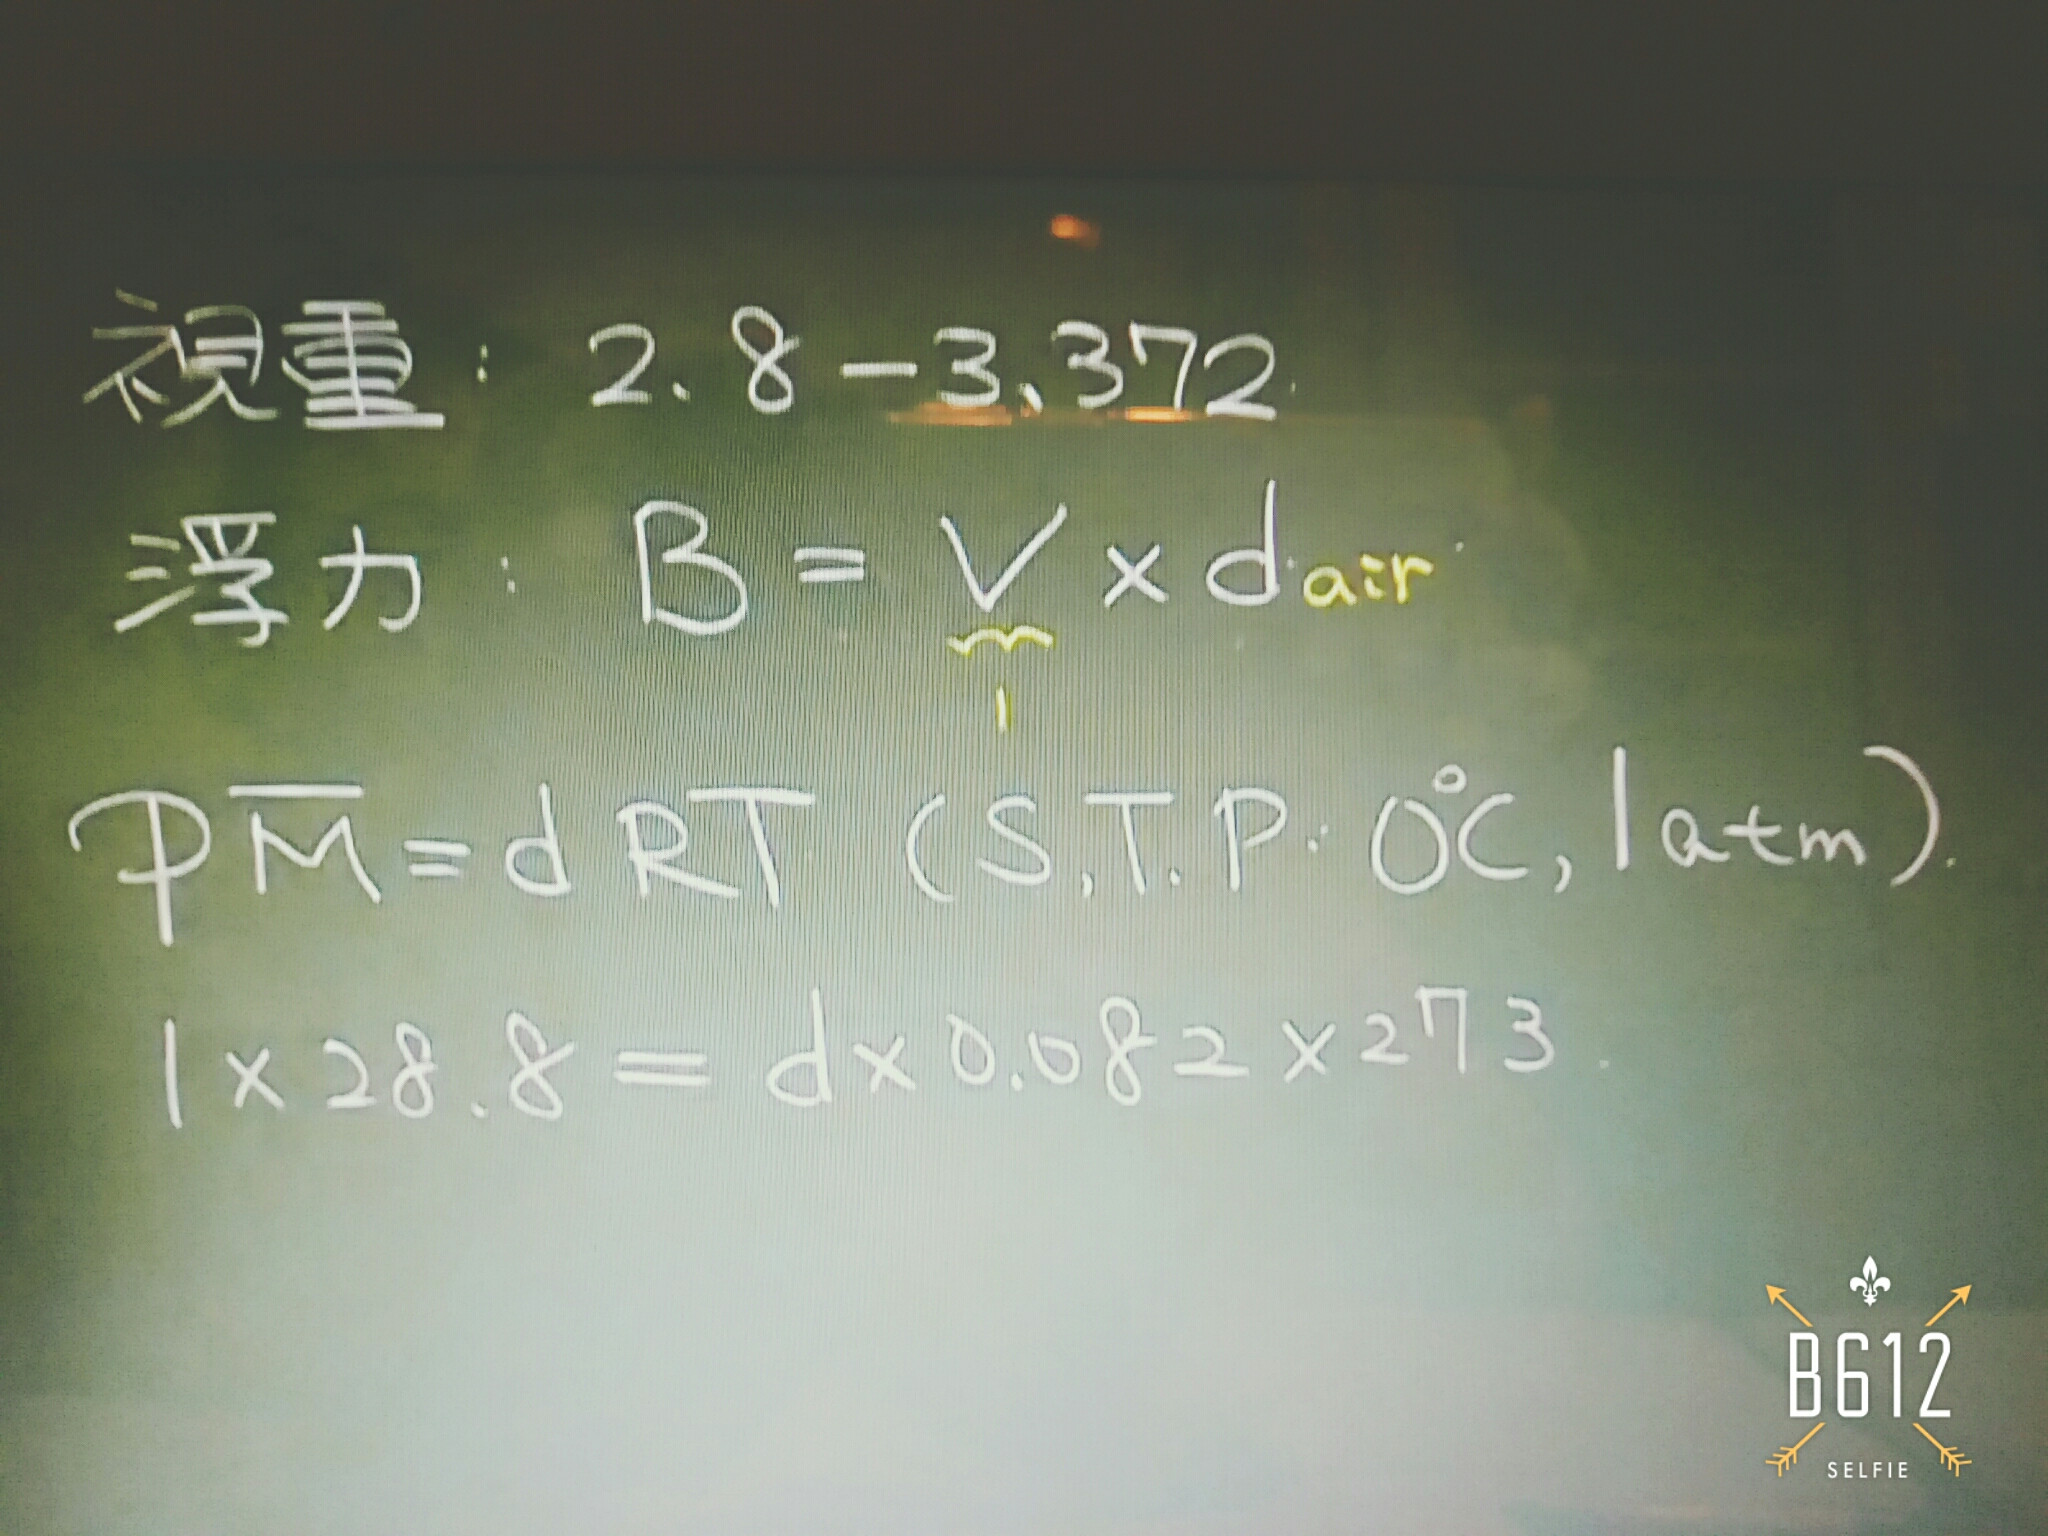 視重:2.8-3.372
浮力:B=V×dair
1
PM̅=dRT (S.T.P:0°C,1atm).
1×28.8=d×0.082×273.
B612
SELFIE